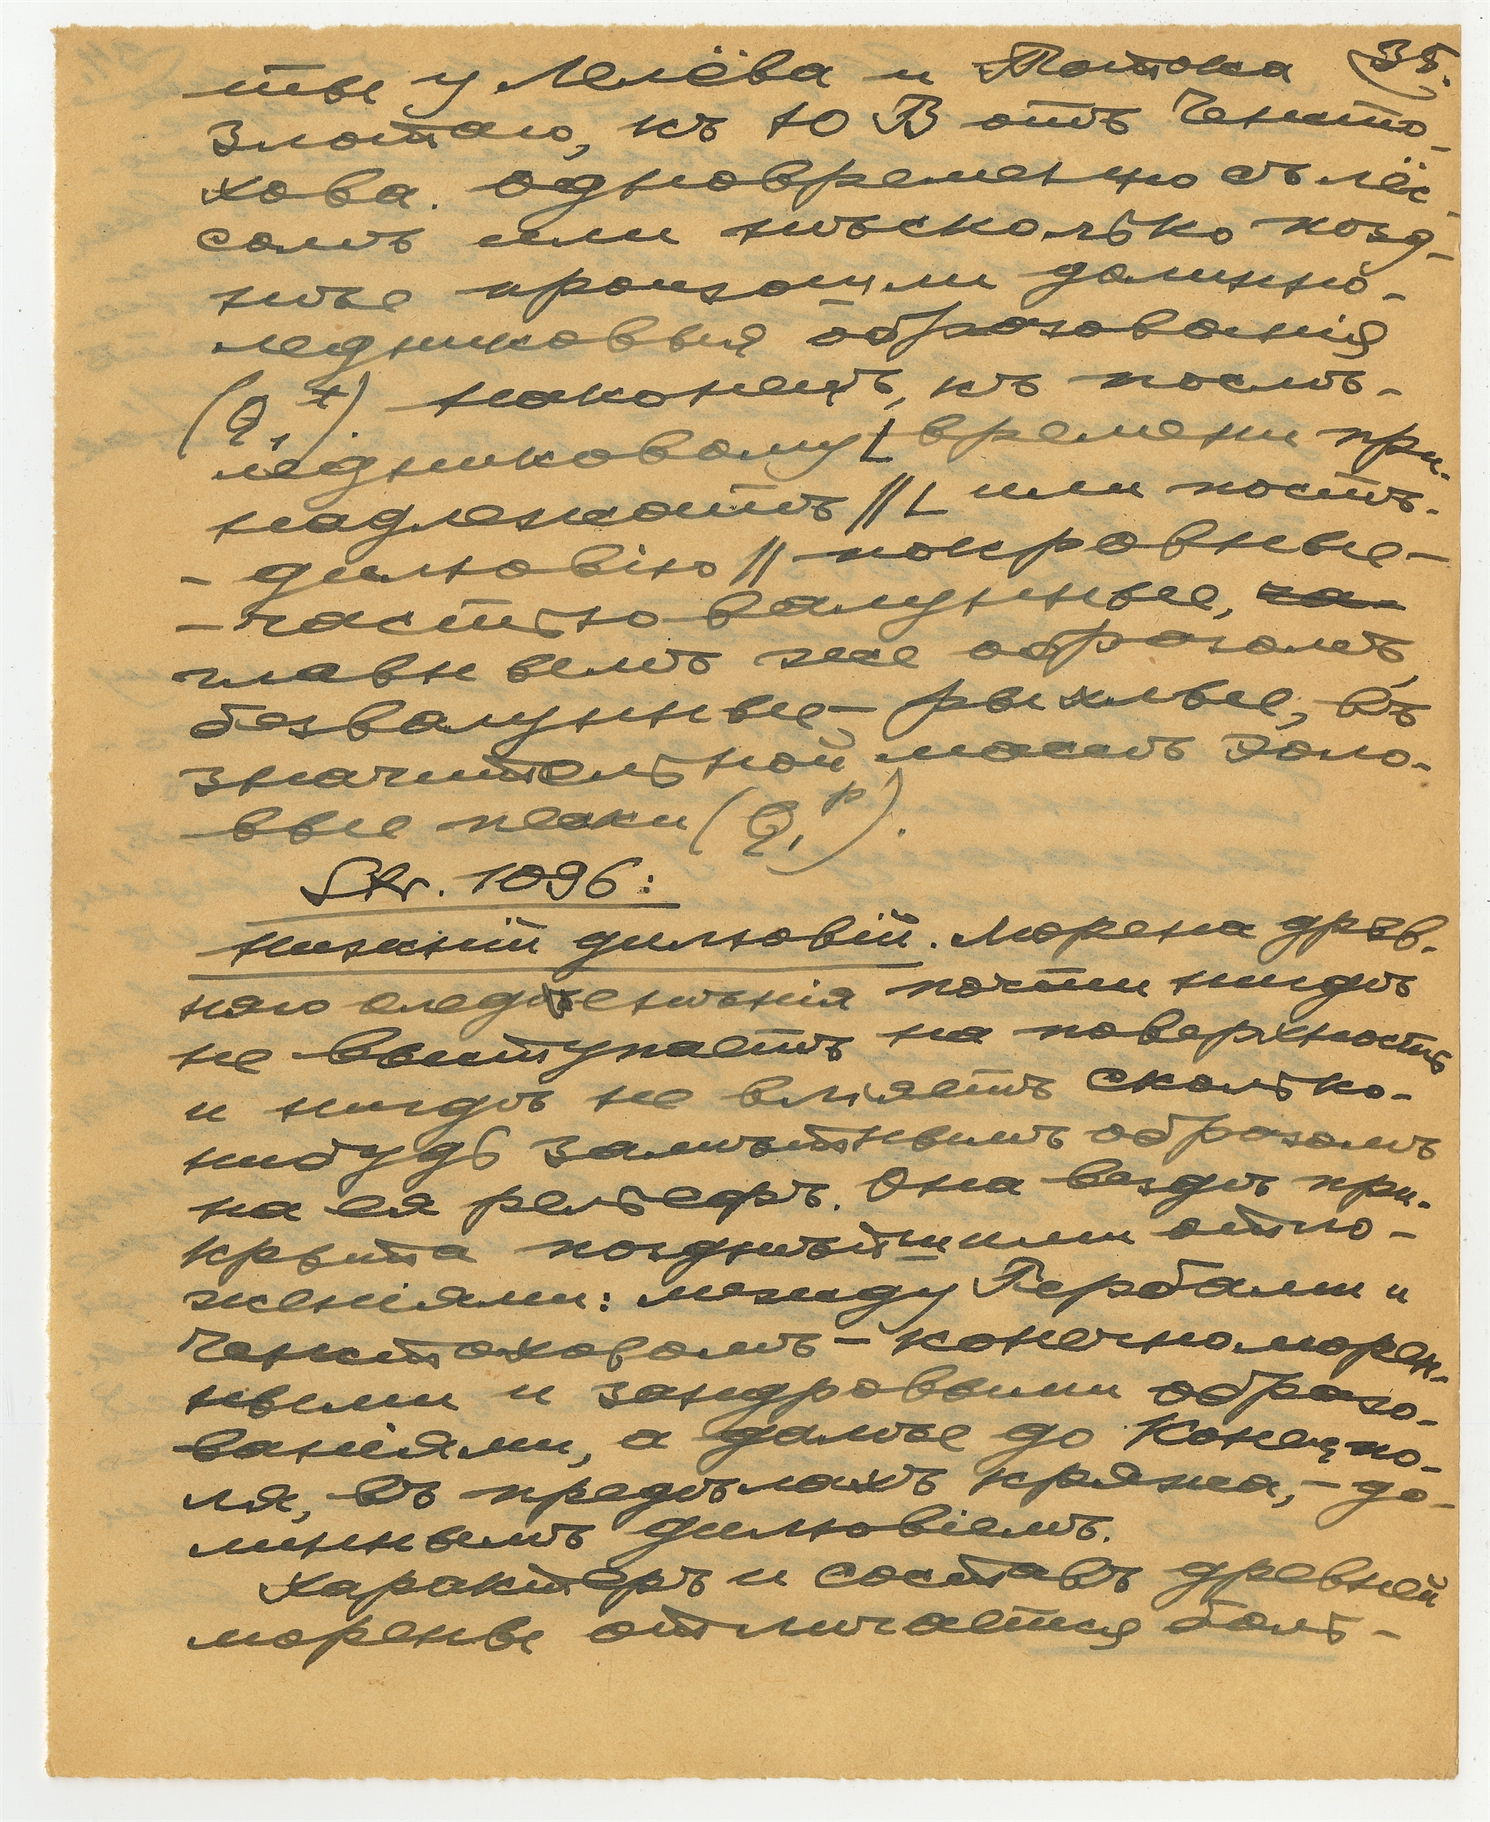 тве у Лелёва и Потока 35.
Злотаго, къ ЮВ отъ Ченсто-
хова. Одновременно съ лёс-
сомъ или нѣсколько позд-
нѣе произошли долинно-
ледниковыя образованія
(Q₁ᵗ). Наконецъ, къ послѣ-
ледниковому [ времени при-
надлежатъ //[ или постъ-
- дилювію // покровные -
- частью валунные, ча-
главнымъ же образомъ,
безвалунные, - рыхлые, въ
значительной массѣ золо-
вые пески (Q₁ᵖ).
Str. 1096:
Нижній дилювій. Морена древ-
няго оледененія почти нигдѣ
не выступаетъ на поверхность
и нигдѣ не вліяетъ сколько-
нибудь замѣтнымъ образомъ
на ея рельефъ. Она вездѣ при-
крыта позднѣйшими отло-
женіями: между Гербами и
Ченстоховомъ - конечноморен-
ными и зандровыми образо-
ваніями, а далѣе до Конецпо-
ля, въ предѣлахъ кряжа, - до-
линнымъ дилювіемъ.
Характеръ и составъ древней
морены отличается боль-